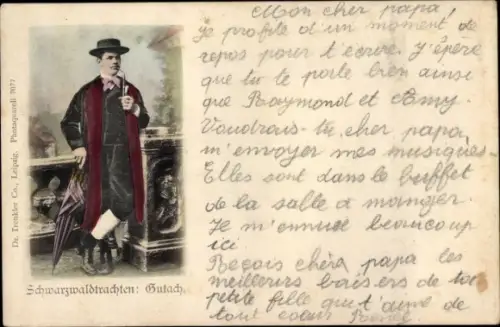 Mon cher papa,
Je profite d'un moment de
repos pour t'écrire. J'éspère
que tu te porte bien ainsi
que Raymond et Amy.
Voudrais-tu, cher papa,
m'envoyer mes musiques.
Elles sont dans le buffet
de la salle à manger.
Je m'ennuie beaucoup
ici.
Reçois chèra papa les
meilleurs baisers de ta
petite fille que t'aime de
tout coeur
Dr. Trenkler Co., Leipzig. Pianaquarell 3077
Schwarzwaldtrachten: Gutach.